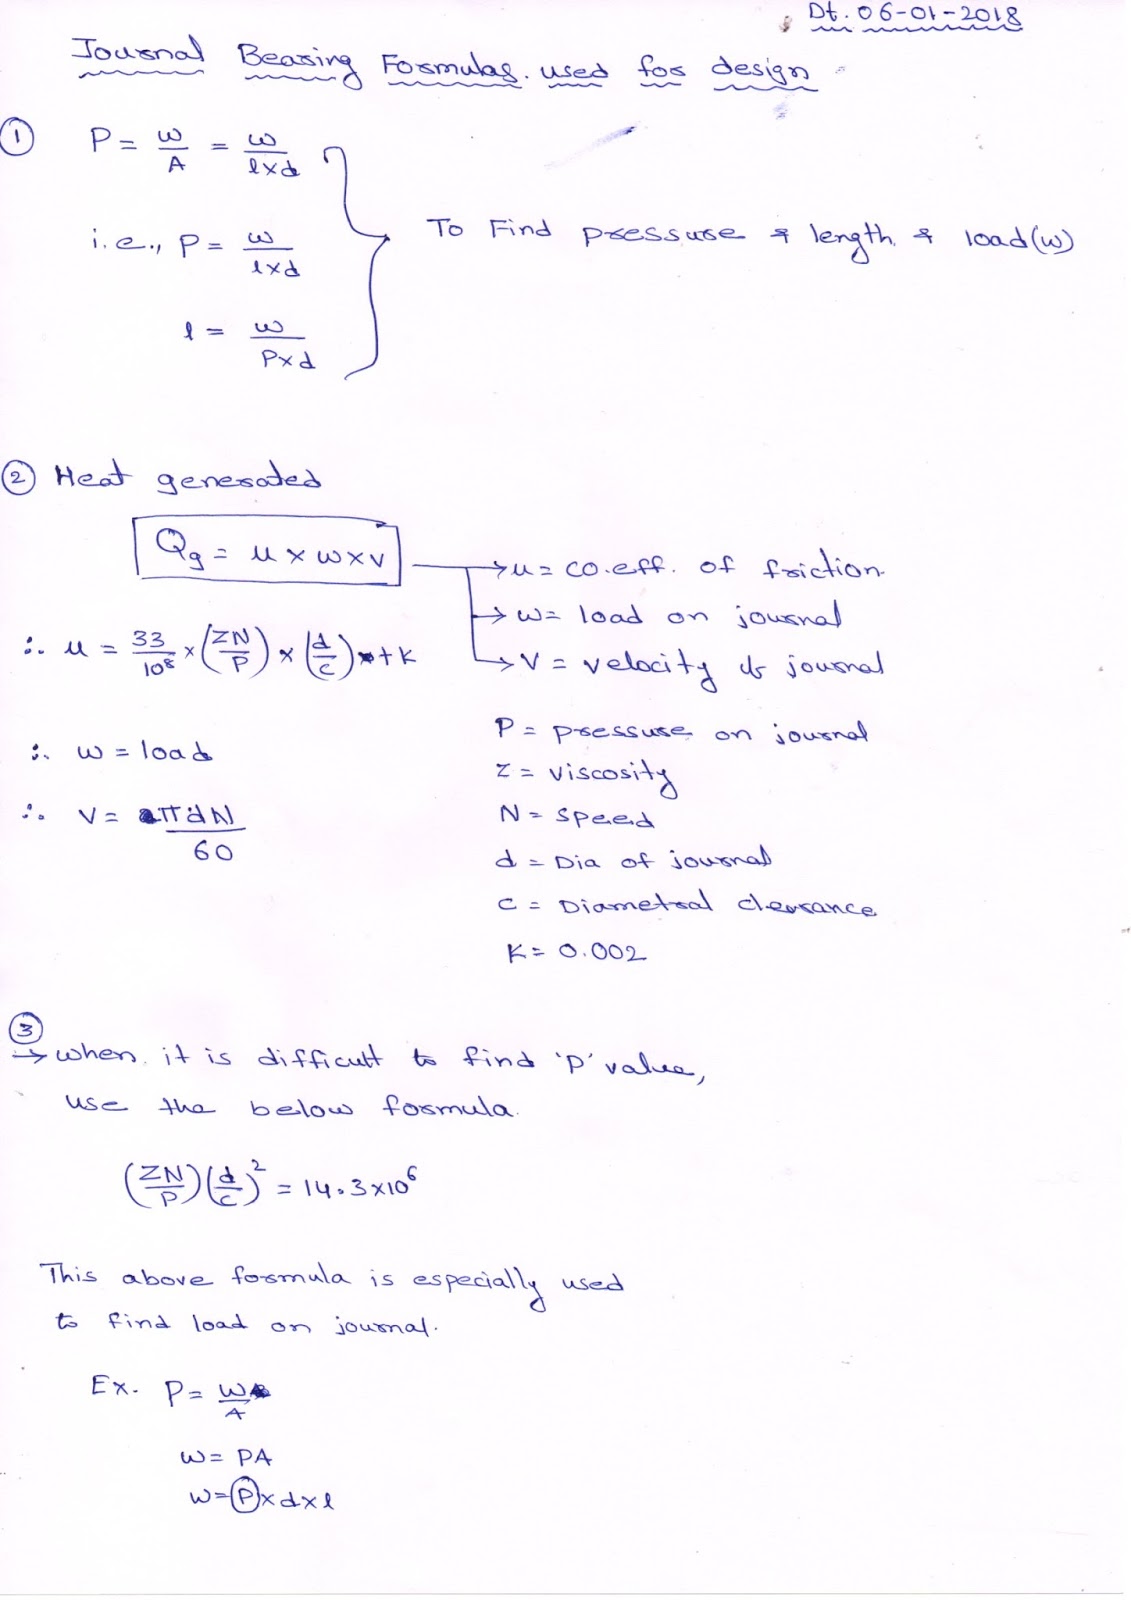 Dt. 06-01-2018
Journal Bearing Formulas used for design
① P = w/A = w/l×d
i.e., P = w/l×d
l = w/P×d
To Find pressure & length & load(w)
② Heat generated
Qg = μ × w × v
→ μ = co.eff. of friction
→ w = load on journal
→ V = velocity of journal
∴ μ = 33/10⁸ × (ZN/P) × (d/c) + K
P = pressure on journal
∴ w = load
Z = viscosity
∴ V = πdN/60
N = speed
d = Dia of journal
C = Diametral clearance
K = 0.002
③
→ when it is difficult to find 'P' value,
use the below formula
(ZN/P)(d/c)² = 14.3×10⁶
This above formula is especially used
to find load on journal.
Ex. P = W/A
w = PA
w = P×d×l